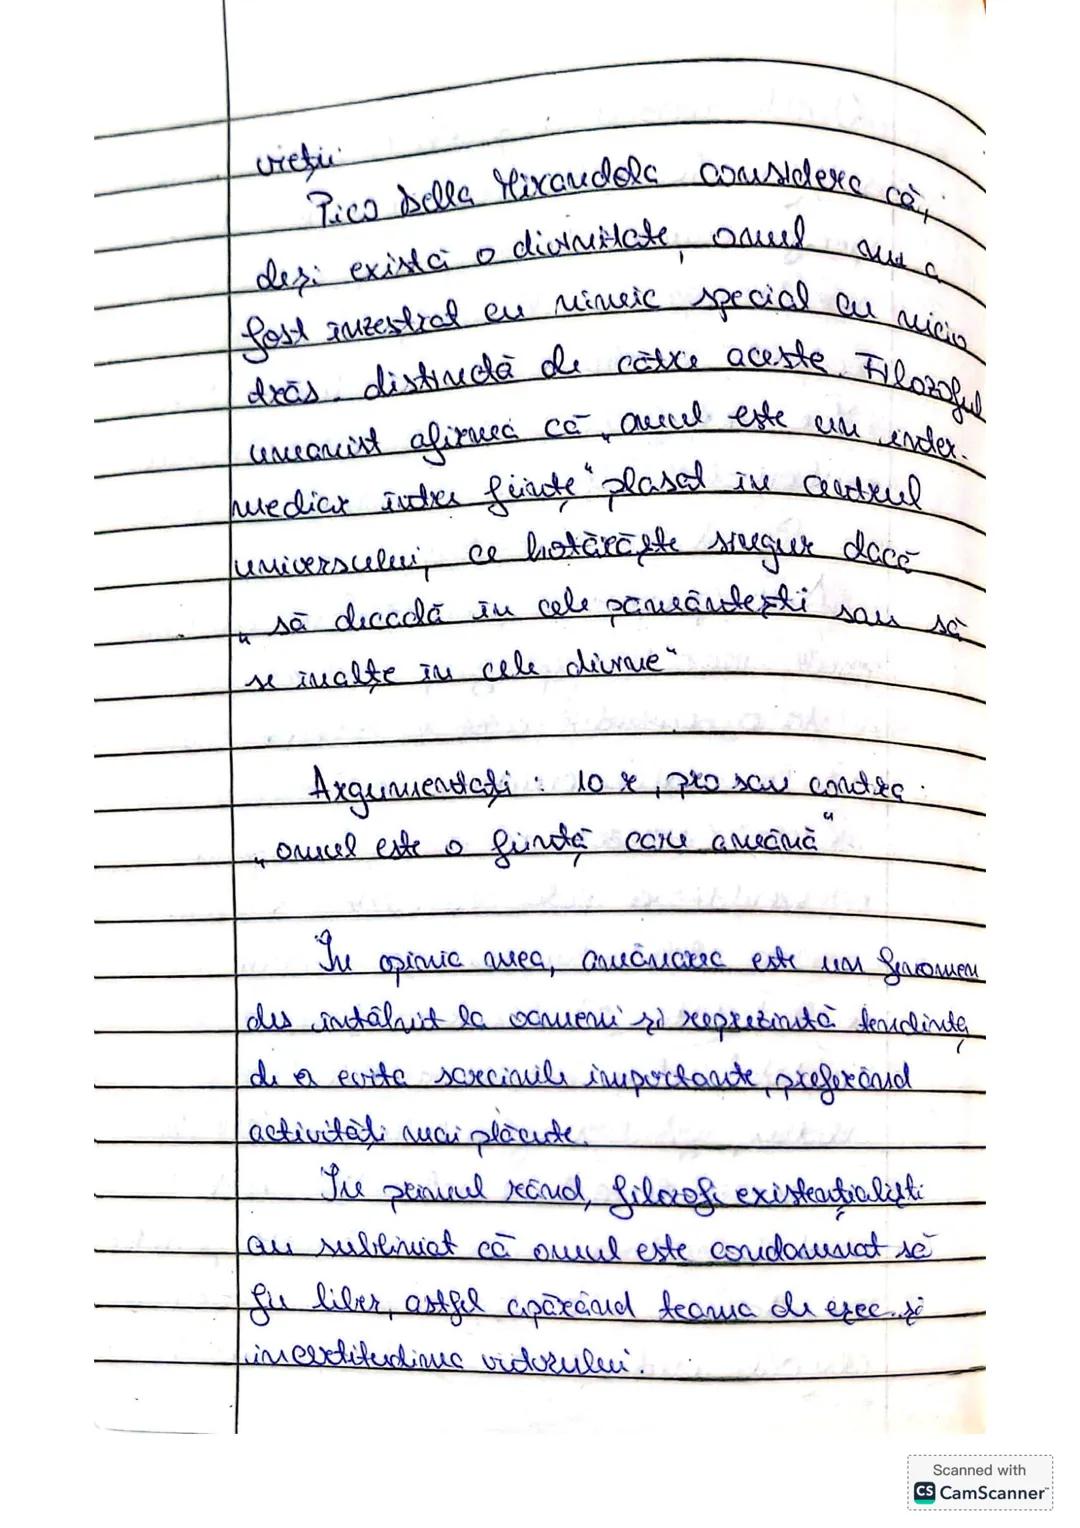 vieții.
Pico Della Mirandola consideră că,
deși există o divinitate, omul nu a
fost înzestrat cu nimic special cu nicio
trăs. distinctă de către aceste. Filozoful
umanist afirmă că „omul este un inter-
mediar între ființe" plasat în centrul
universului, ce hotărăște singur dacă
„să decadă în cele pământești sau să
se înalțe în cele divine"
Argumentați: 10 r, pro sau contra.
„omul este o ființă care amână"
În opinia mea, amânarea este un fenomen
des întâlnit la oameni și reprezintă tendința
de a evita sarcinile importante, preferând
activități mai plăcute.
În primul rând, filozofi existențialiști
au subliniat că omul este condamnat să
fie liber, astfel apărând teama de eșec și
incertitudinea viitorului.
Scanned with
CS CamScanner